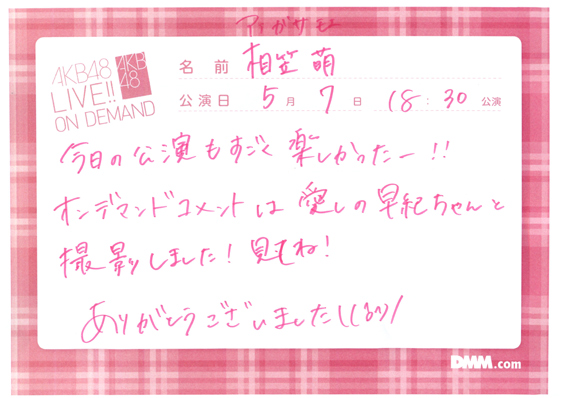 アイガサモエ
AKB48
LIVE!!
ON DEMAND
AKB
48
名前 相笠 萌
公演日 5月 7日 18:30 公演
今日の公演もすごく楽しかったー!!
オンデマンドコメントは愛しの早紀ちゃんと
撮影しました!見てね!
ありがとうございました\(
DMM.com